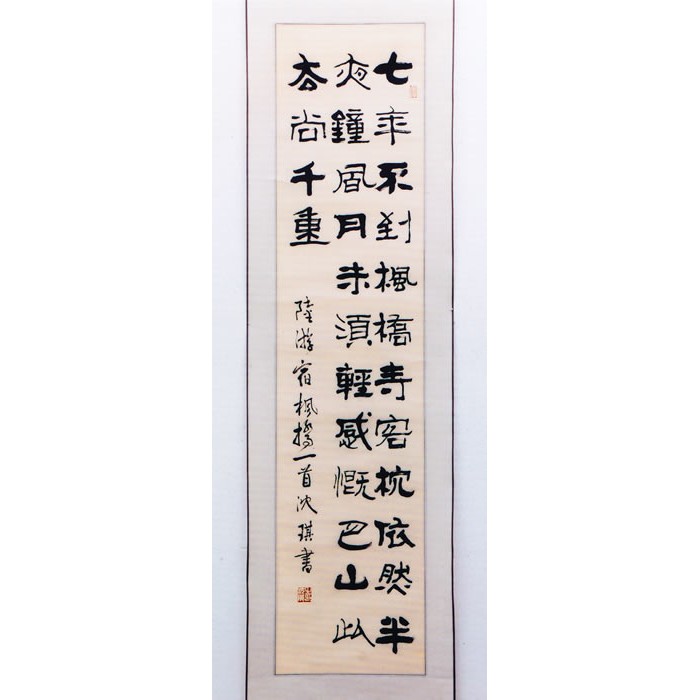 七年不到楓橋寺客枕依然半
夜鐘風月未須輕感慨巴山此
去尚千重
陸游宿楓橋一首沈琪書